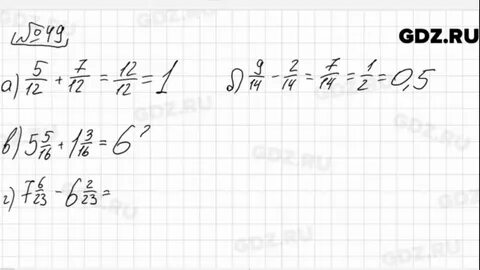 №49
GDZ.RU
а) 5/12 + 7/12 = 12/12 = 1
б) 9/14 - 2/14 = 7/14 = 1/2 = 0,5
в) 5 5/16 + 1 3/16 = 6
г) 7 6/23 - 6 2/23 =